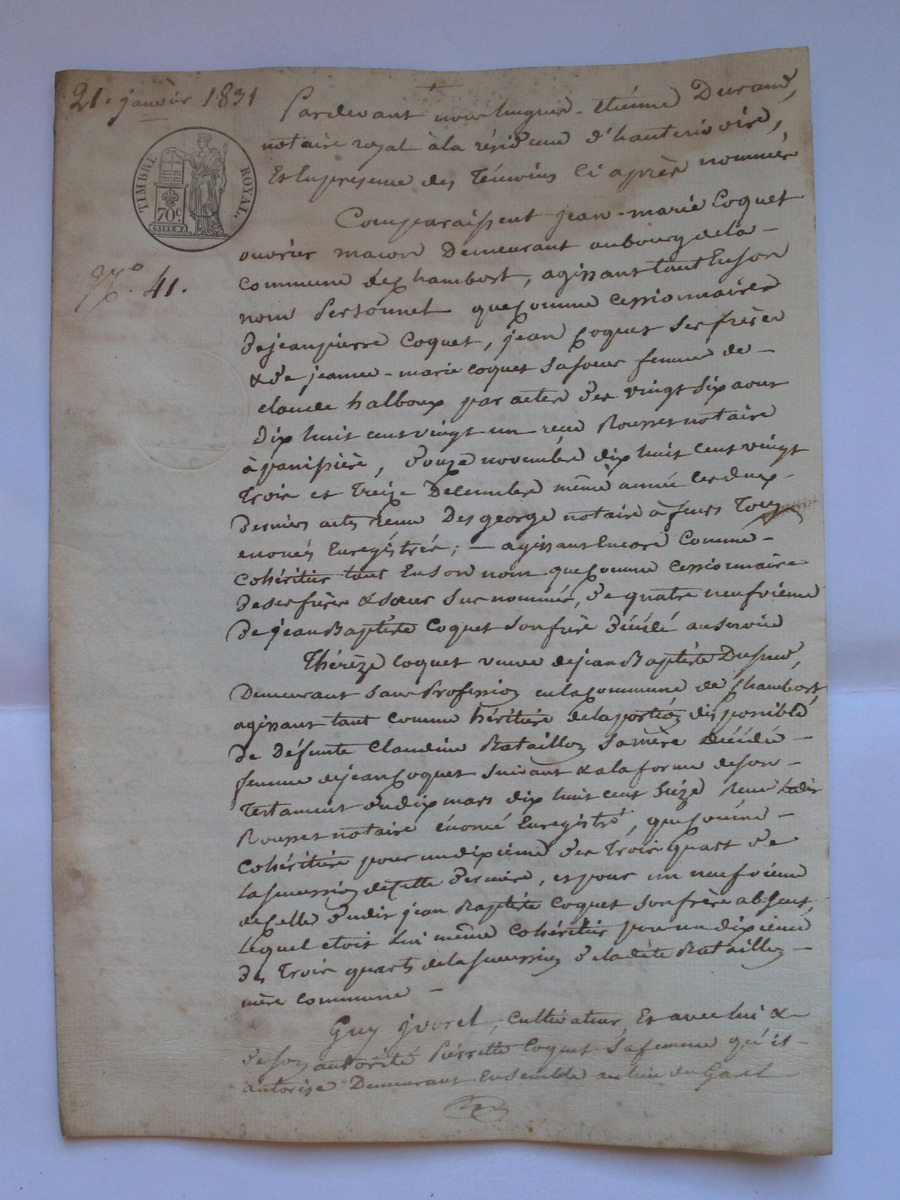 21. janvier 1831
TIMBRE ROYAL.
70c.
N.o 41.
Pardevant nous hugues-Etienne Durand,
notaire royal à la résidence d'hauterivoire,
Et Enpresence des Témoins Ci après nommés
Comparaissent jean-marie Coquet
ouvrier macon Demeurant aubourg dela-
commune de Chambost, agissant tant Enson
nom Personnel que Comme cessionnaire
de jeanpierre Coquet, jean Coquet ses frères
& de jeanne-marie coquet sa soeur femme de-
claude halboux par actes des vingt six aout
Dix huit cent vingt un recu Rousset notaire
à panissière, douze novembre dix huit cent vingt
Trois et Treize Decembre même année les deux-
Derniers actes Recu Desgeorge notaire à feurs Tous
enoncés Enregistrés; - agissant Encore Comme-
Cohéritier tant En son nom que Comme Cessionnaire
de ses frères & soeur sus nommés, de quatre neufvieme
De jean Baptiste Coquet son frère décédé au service
Thérèze Coquet veuve de jean Baptiste
Demeurant sans Profession en la Commune de Chambost,
agissant tant comme héritière de la portion disponible
de Défunte Claudine Bataillon sa mère décédée-
femme de jean Coquet suivant & à la forme de son-
Testament du dix mars dix huit cent seize Recu ledit
Rousset notaire énoncé Enregistré, que Comme-
Cohéritière pour un dixieme des Trois quart de
la succession de Celle dernière, et pour un neufvieme
de Celle dudit jean Baptiste Coquet son frère absent,
Lequel etoit Lui même Cohéritier pour un dixieme
des Trois quarts de la succession de la dite Bataillon-
mère Commune -
Guy jvorel, Cultivateur Et avec lui &
de son autorité Pierrette Coquet sa femme qu'il-
autorise Demeurant Ensemble au lieu du